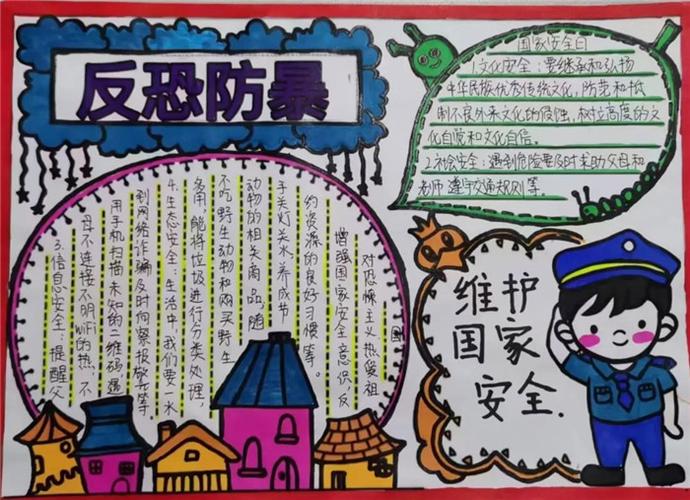 反恐防暴
国家安全日
1.文化安全：要继承和弘扬
中华民族优秀传统文化，防范和抵
制不良外来文化的侵蚀，树立高度的文
化自觉和文化自信。
2.社会安全：遇到危险要及时求助父母和
老师 遵守交通规则等。
3.信息安全：提醒父
母不连接不明WiFi的热，不
用手机扫描未知的二维码，遇
到网络诈骗及时向警报警等
4.生态安全：生活中，我们要一水
多用，能将垃圾进行分类处理，
不吃野生动物和购买野生
动物的相关商品，随
手关灯关水，养成节
约资源的良好习惯等。
增强国家安全意识，反
对恐怖主义热爱祖
国
维护
国家
安全.